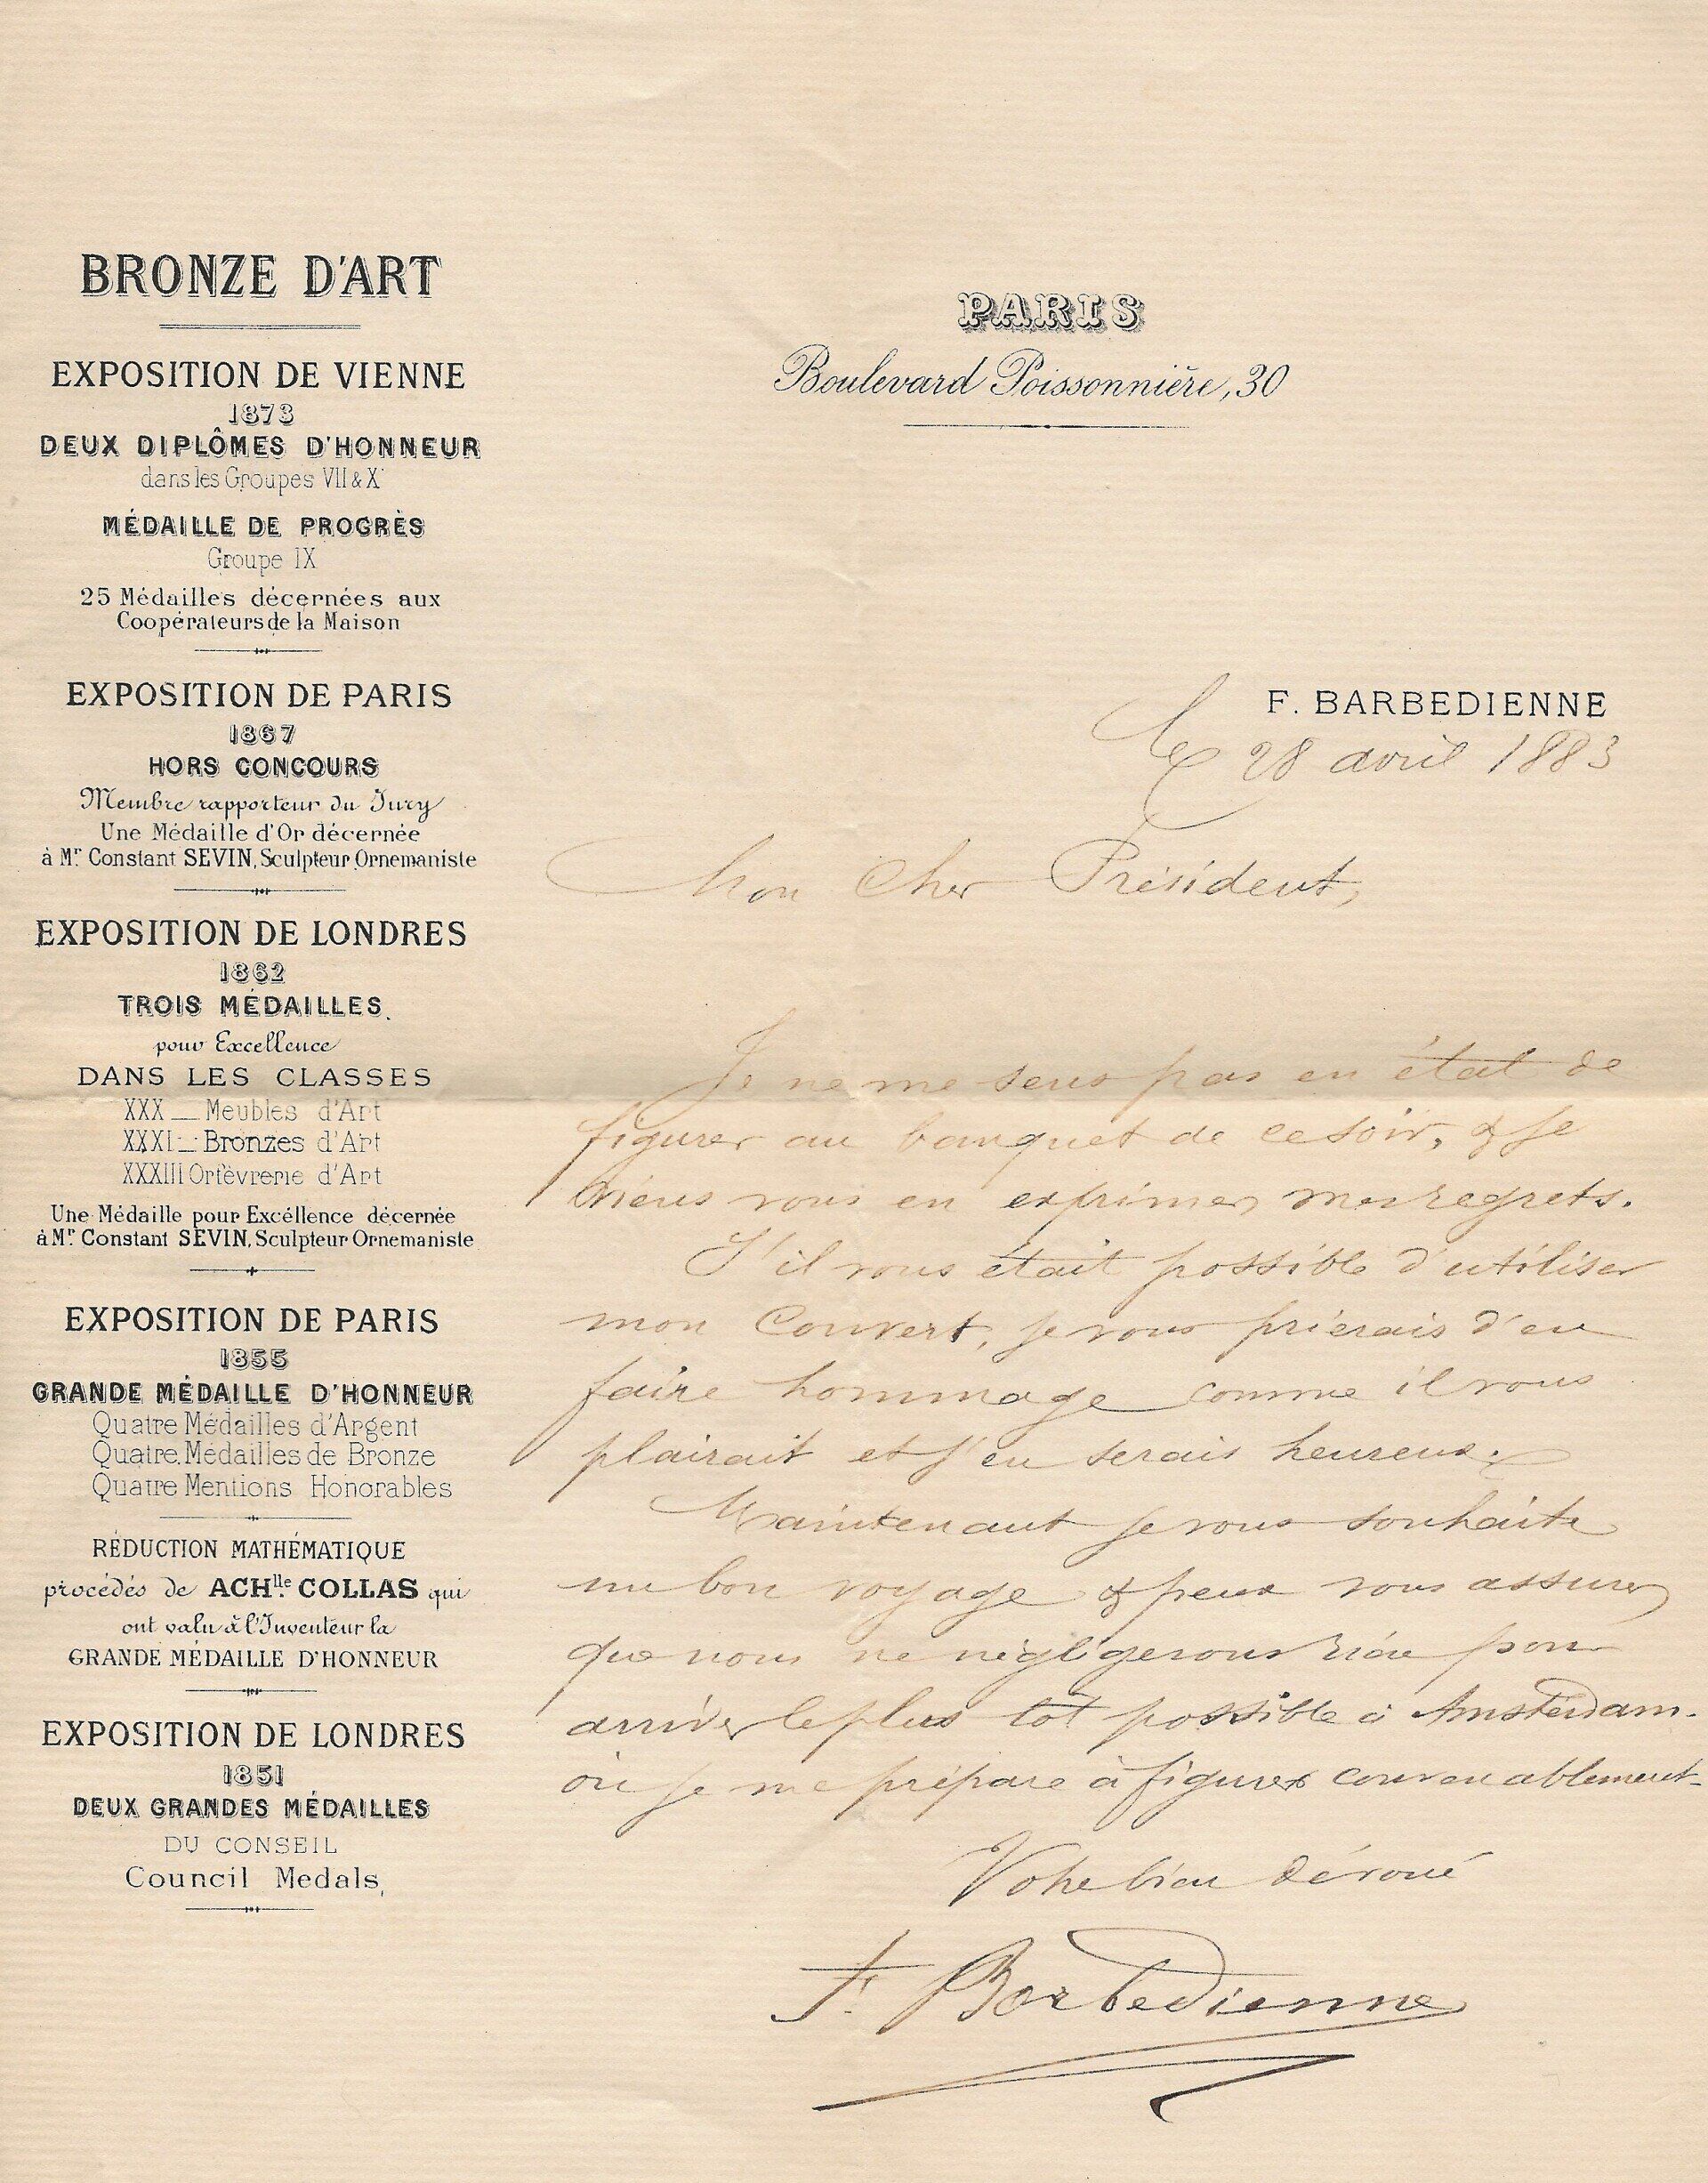 BRONZE D'ART
EXPOSITION DE VIENNE
1873
DEUX DIPLÔMES D'HONNEUR
dans les Groupes VII & X
MÉDAILLE DE PROGRÈS
Groupe IX
25 Médailles décernées aux
Coopérateurs de la Maison
EXPOSITION DE PARIS
1867
HORS CONCOURS
Membre rapporteur du Jury
Une Médaille d'Or décernée
à Mr. Constant SEVIN, Sculpteur Ornemaniste
EXPOSITION DE LONDRES
1862
TROIS MÉDAILLES
pour Excellence
DANS LES CLASSES
XXX _ Meubles d'Art
XXXI _ Bronzes d'Art
XXXIII Orfèvrerie d'Art
Une Médaille pour Excéllence décernée
à Mr. Constant SEVIN, Sculpteur Ornemaniste
EXPOSITION DE PARIS
1855
GRANDE MÉDAILLE D'HONNEUR
Quatre Médailles d'Argent
Quatre Médailles de Bronze
Quatre Mentions Honorables
RÉDUCTION MATHÉMATIQUE
procédés de ACHlle. COLLAS qui
ont valu à l'Inventeur la
GRANDE MÉDAILLE D'HONNEUR
EXPOSITION DE LONDRES
1851
DEUX GRANDES MÉDAILLES
DU CONSEIL
Council Medals
PARIS
Boulevard Poissonnière, 30
F. BARBEDIENNE
Le 28 avril 1883
Mon Cher Président,
Je ne me sens pas en état de
figurer au banquet de ce soir, & je
viens vous en exprimer mes regrets.
S'il vous était possible d'utiliser
mon Couvert, je vous prierais d'en
faire hommage comme il vous
plairait et j'en serais heureux.
Maintenant je vous souhaite
un bon voyage & peux vous assurer
que nous ne négligerons rien pour
arriver le plus tôt possible à Amsterdam.
où je me prépare à figurer convenablement.
Votre bien dévoué
F. Barbedienne